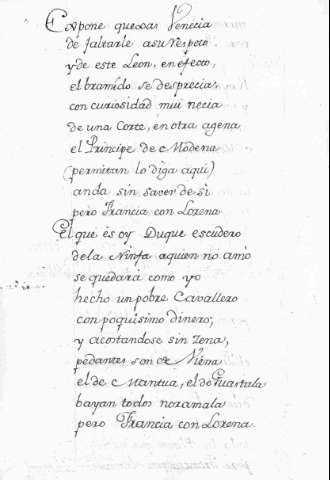 Expone quexas Venecia
de faltarle asu respeto
y de este Leon, en efecto,
el bramido se desprecia,
con curiosidad mui necia
de una Corte, en otra agena
el Principe de Modena
(permitan lo diga aqui)
anda sin saver de si
pero Francia con Lorena
El que es oy Duque escudero
dela Ninfa aquien no amò
se quedarà como yo
hecho un pobre Cavallero
con poquisimo dinero;
y acostandose sin zena,
pedantes son de
el de Mantua, el de Guastala
bayan todos noramala
pero Francia con Lorena.